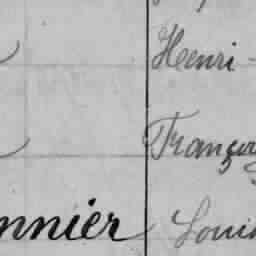 Henri -
Françoi
nnier Louis